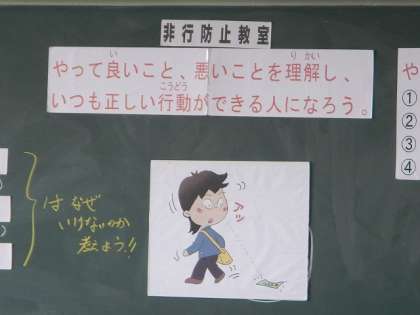 非行防止教室
やって良いこと、悪いことを理解し、
いつも正しい行動ができる人になろう。
は なぜ
いけないのか
考えよう!!
アッ
や
①
②
③
④